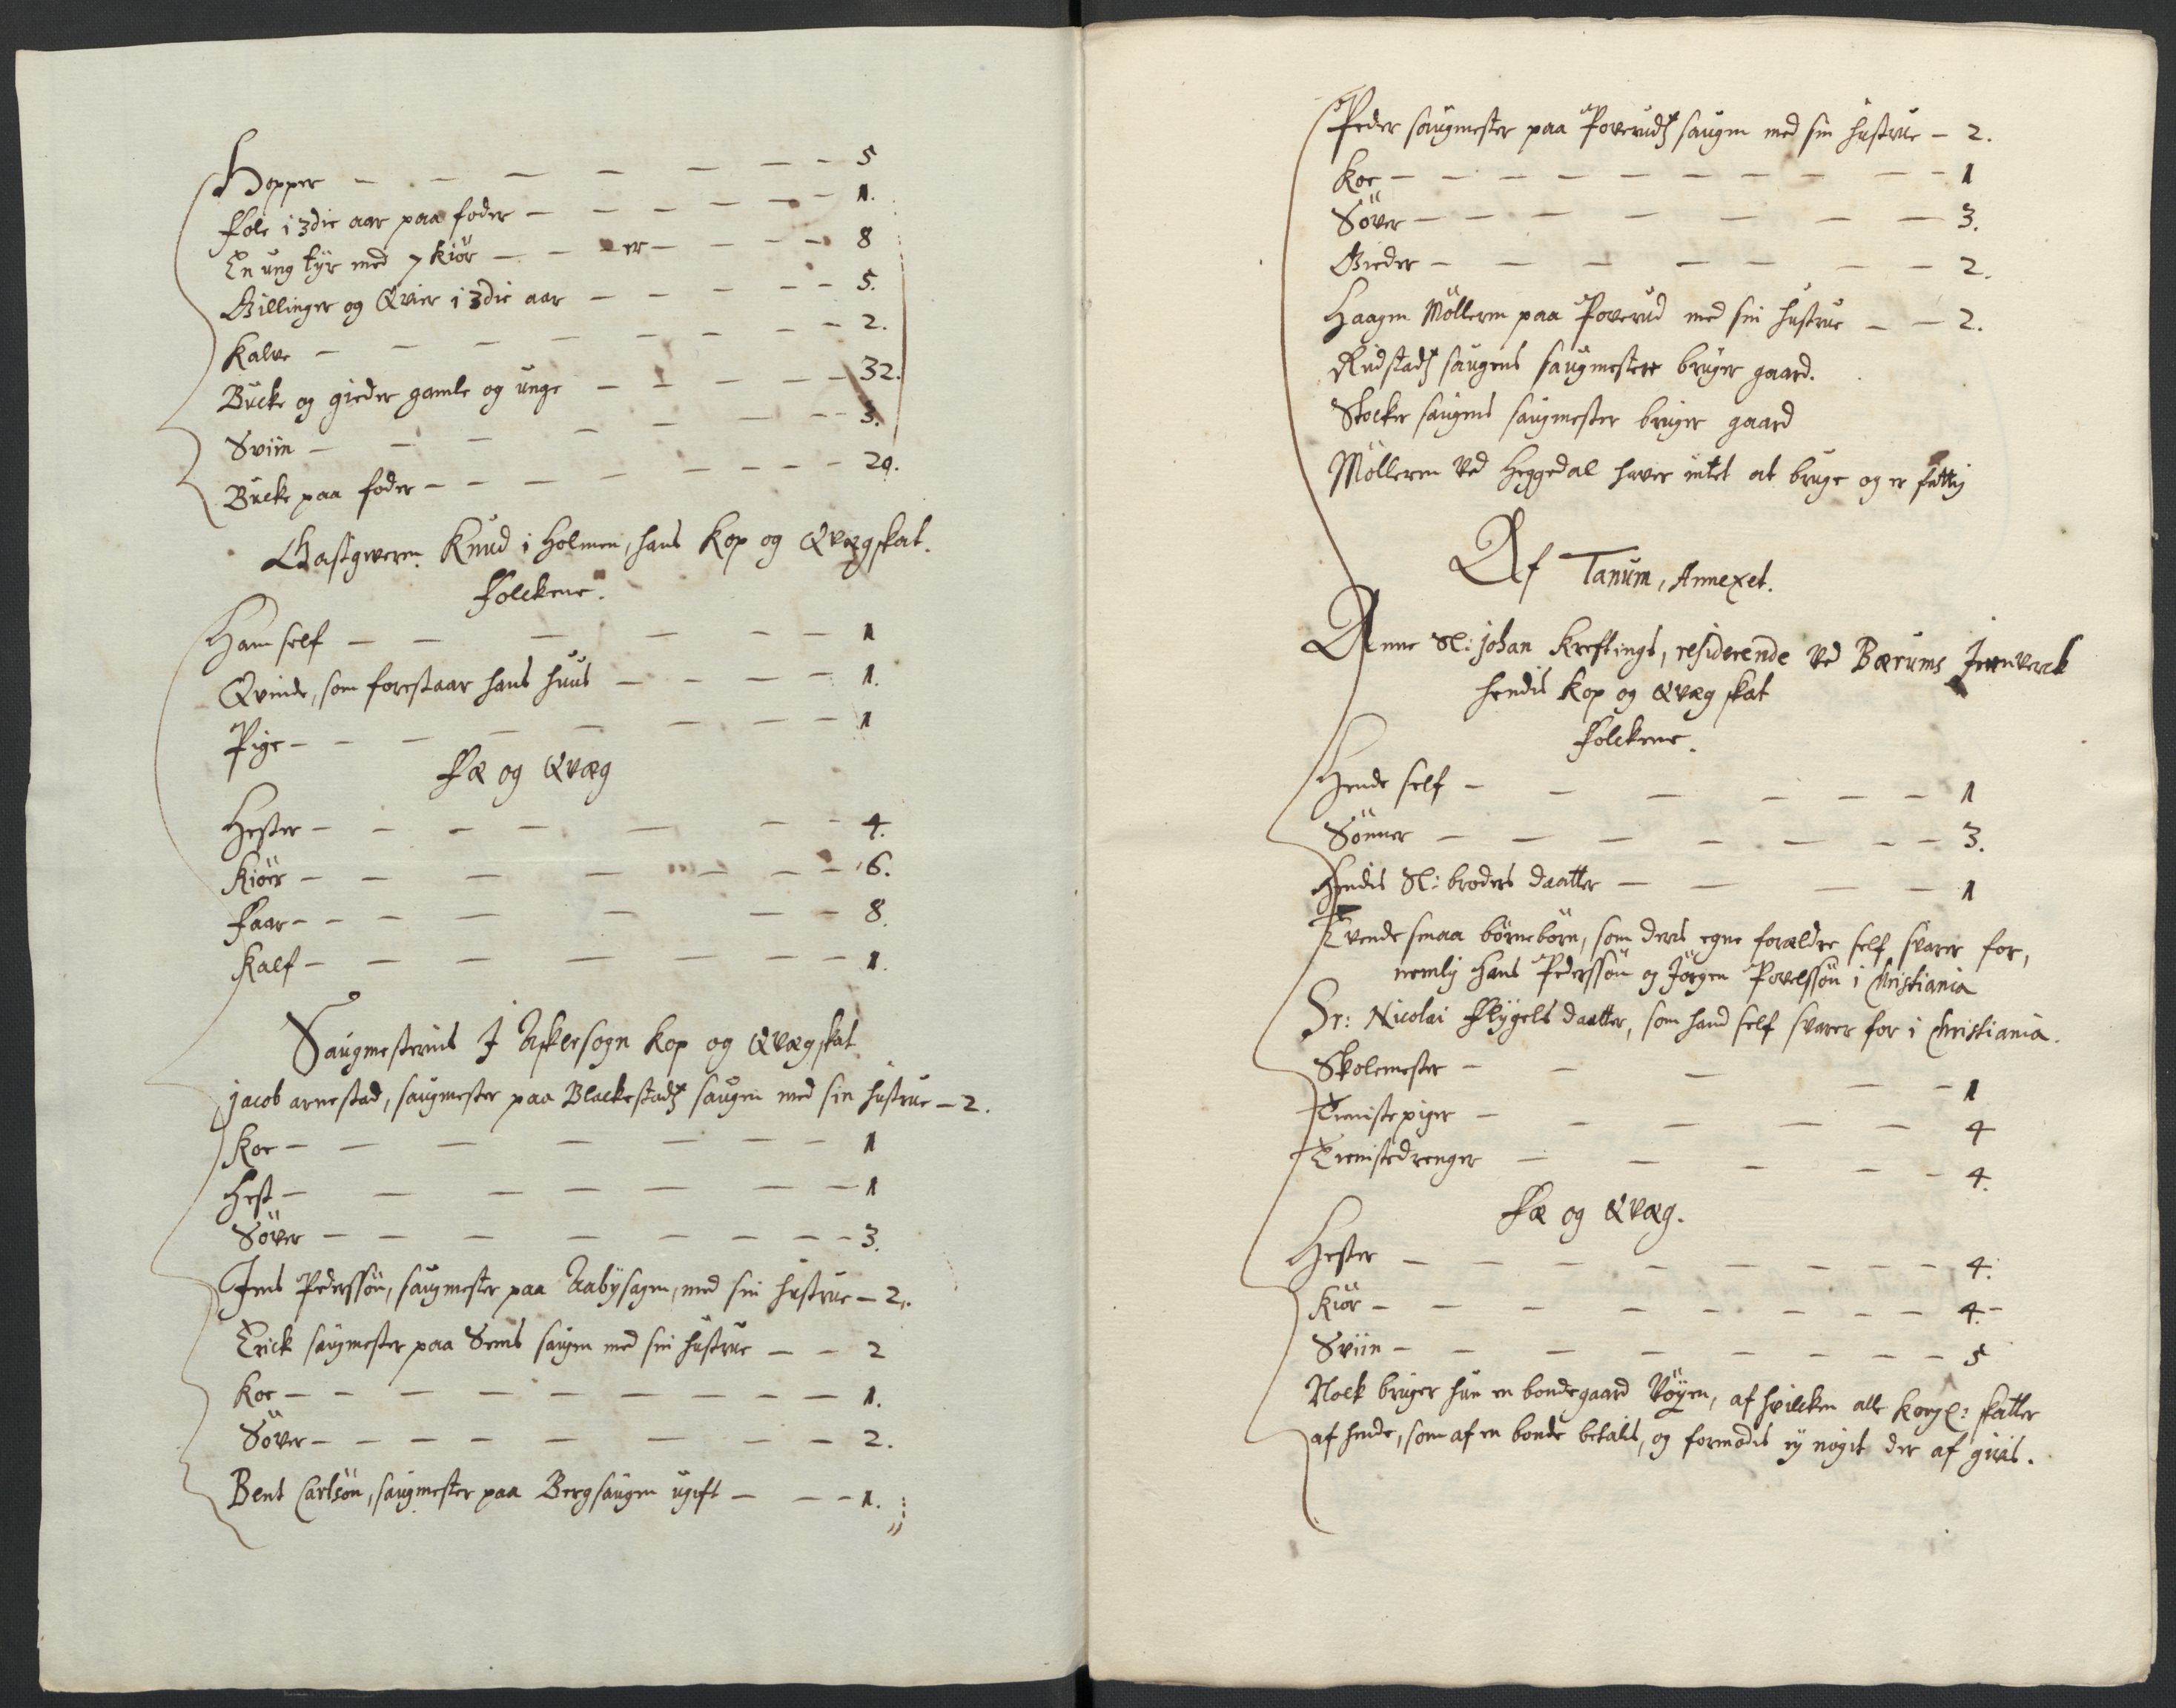 Hopper — — — — — — — 5
Fole i 3die aar paa foder — — — — — — 1.
En ung tyr med 7 kiör — — — er — — — — 8
Gillinger og Qvier i 3die aar — — — — — 5.
Kalve — — — — — — — — 2.
Bucke og gieder gamle og unge — — — — — 32.
Sviin — — — — — — — — 3.
Bucke paa foder — — — — — — — — 20.
Gastgiveren Knud i Holmen, hans Kop og Qvægskat.
Folckene.
Ham self — — — — — — 1
Qvinde, som forestaar hans huus — — — — — 1.
Pige — — — — — — — — 1
Fæ og Qvæg
Hester — — — — — — — 4.
Kiöer — — — — — — — 6.
Faar — — — — — — — 8.
Kalf — — — — — — — — 1.
Saugmesterens I Askersogn Kop og Qvægskat
Jacob arnestad, saugmester paa Blackestadz saugen med sin hustrue — 2.
Koe — — — — — — — — 1
Hest — — — — — — — — 1
Söver — — — — — — — — — 3.
Jens Pederssön, saugmester paa Aabysagen, med sin hustrue — 2.
Erick saugmester paa Sems saugen med sin hustrue — — 2
Koe — — — — — — — — — 1.
Söver — — — — — — — — — 2.
Bent Carlsön, saugmester paa Bergsaugen ugift — — — 1.
Peder saugmester paa Poverudz saugen med sin hustrue — 2.
Koe — — — — — — — — — — 1
Söver — — — — — — — — 3.
Gieder — — — — — — — — 2.
Haagen Mölleren paa Poverud med sin hustrue — — 2.
Rudstadz saugens saugmester bruger gaard.
Stocker saugens saugmester bruger gaard
Mölleren Ved Heggedal haver intet at bruge og er fattig
Af Tanum, Annexet.
Anne Sl: Johan Kreftings, residerende Ved Bærums Jernverck
hendis Kop og Qvæg skat
Folckene.
Hende self — — — — — — 1
Sönner — — — — — — — — 3.
Hendis Sl: broders daatter — — — — 1
Tvende smaa börnebörn, som deris egne forældre self svarer for,
nemlig Hans Pederssön og Jörgen Povelssön i Christiania
Sr: Nicolai Flygels daatter, som hand self svarer for i Christiania.
Skolemester — — — — — 1
Tieniste piger — — — — — — 4
Tienistedrenger — — — — — 4.
Fæ og Qvæg.
Hester — — — — — — — — — 4.
Kiör — — — — — — — — — 4. —
Sviin — — — — — — — — — 5
Nock bruger hun en bondegaard Vöyen, af hvilcken alle Kongl: skatter
af hende, som af en bonde betalis, og formodis ej nogit der af givis.